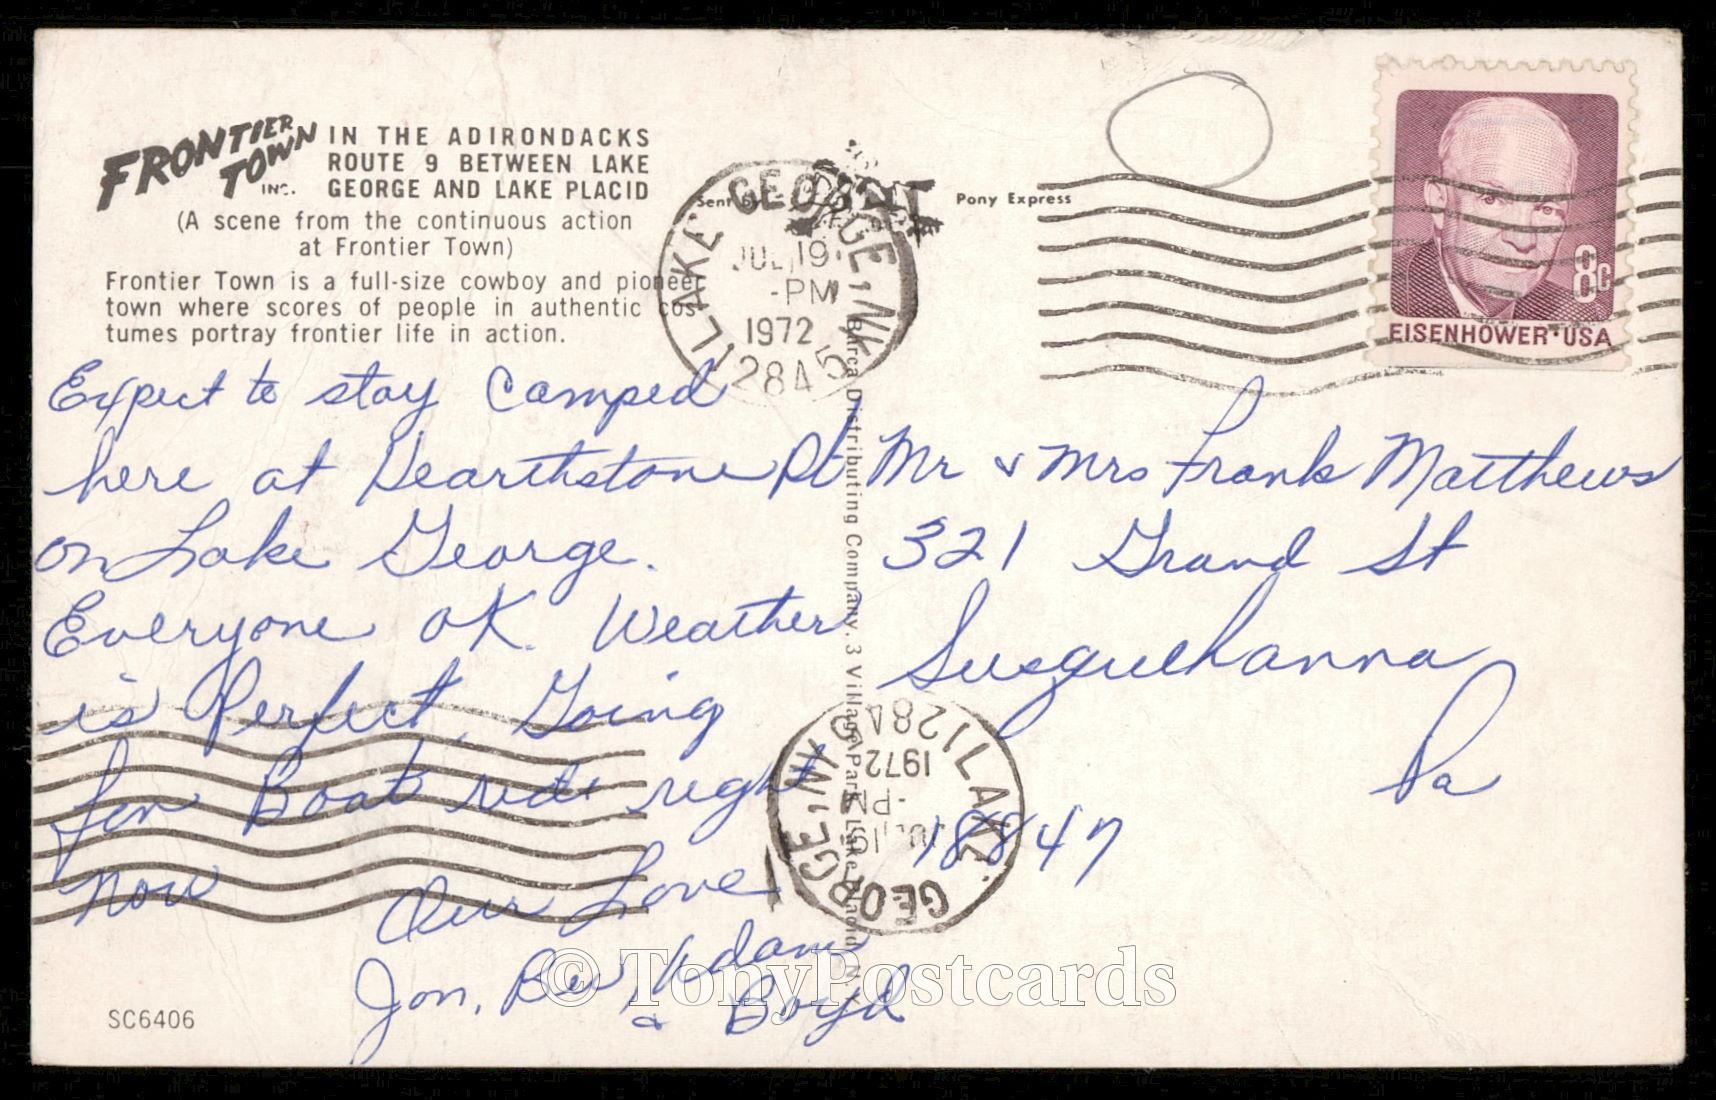 FRONTIER TOWN INC.
IN THE ADIRONDACKS
ROUTE 9 BETWEEN LAKE
GEORGE AND LAKE PLACID
(A scene from the continuous action
at Frontier Town)
Frontier Town is a full-size cowboy and pioneer
town where scores of people in authentic cos-
tumes portray frontier life in action.
Expect to stay Camped
here at Hearthstone Pt
on Lake George.
Everyone OK. Weather
is Perfect. Going
for Boat ride right
now
Our Love
Jon, Bev, Adam
& Boyd
SC6406
Sent by
Pony Express
LAKE GEORGE, NY
JUL 19
-PM
1972
12845
8c
EISENHOWER·USA
Mr & Mrs Frank Matthews
321 Grand St
Susquehanna
Pa
18847
Barca Distributing Company, 3 Village Park, Lake Placid N.Y.
LAKE GEORGE, NY
JUL 19
-PM
1972
1284
© TonyPostcards